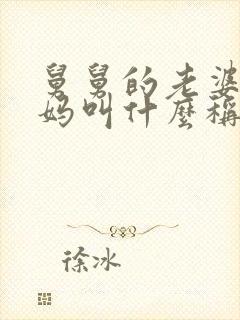 舅舅的老婆
妈叫什麼稱
徐冰